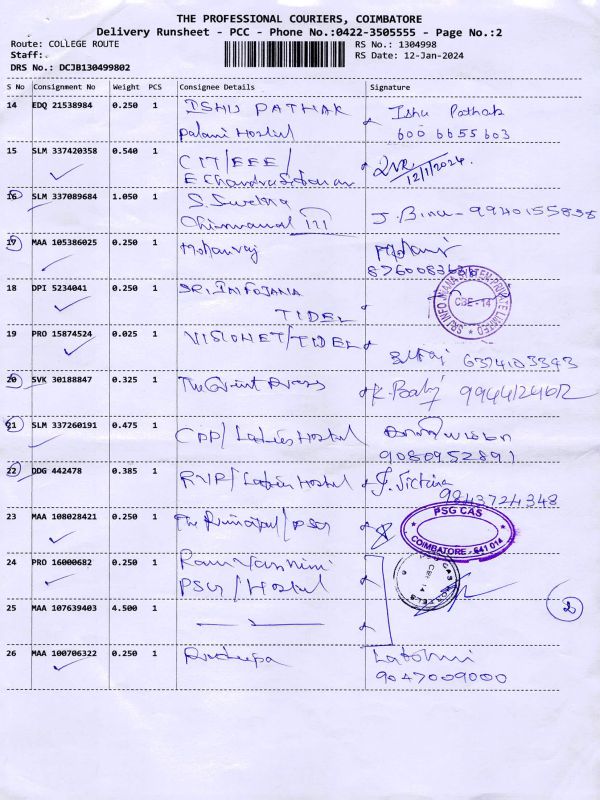 THE PROFESSIONAL COURIERS, COIMBATORE
Delivery Runsheet - PCC - Phone No.:0422-3505555 - Page No.:2
Route: COLLEGE ROUTE
RS No.: 1304998
Staff:
RS Date: 12-Jan-2024
DRS No.: DCJB130499802
S No Consignment No Weight PCS Consignee Details Signature
14 EDQ 21538984 0.250 1 ISHU PATHAK Ishu Pathak
Palani Hostel 600 6655603
15 SLM 337420358 0.540 1 CIT/EEE/
E. 12/1/2024
16 SLM 337089684 1.050 1 S. Swetha
Chinnamal III J. Binu - 9940155838
17 MAA 105386025 0.250 1 Mohanraj
18 DPI 5234041 0.250 1 SRI INFOJANA
TIDEL
SRI INFOJAANA SYSTEM PRIVATE LIMITED
CBE-14
19 PRO 15874524 0.025 1 VISIONET/TIDEL
6374103393
20 SVK 30188847 0.325 1 The Grint K. 9944124612
21 SLM 337260191 0.475 1 CPP/Ladies Hostel
9080952891
22 DDG 442478 0.385 1 RVR/Ladies Hostel J. Victoria
9843724348
23 MAA 108028421 0.250 1 The Principal/PSG
PSG CAS
COIMBATORE - 641 014
24 PRO 16000682 0.250 1 Ram
PSG/Hostel
25 MAA 107639403 4.500 1
2
26 MAA 100706322 0.250 1 Lakshmi
9047009000